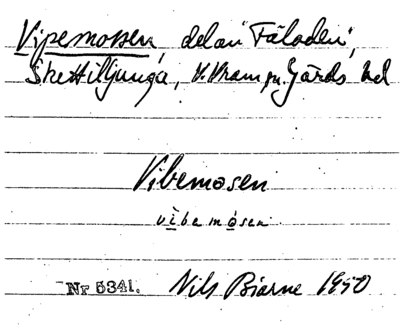 Vipemossen, del av "Fäladen",
Skettiljunga, V. Vram sn. Gärds hd
Vibemosen
vibe mósen
Nr 5341. Nils Bjarne 1950